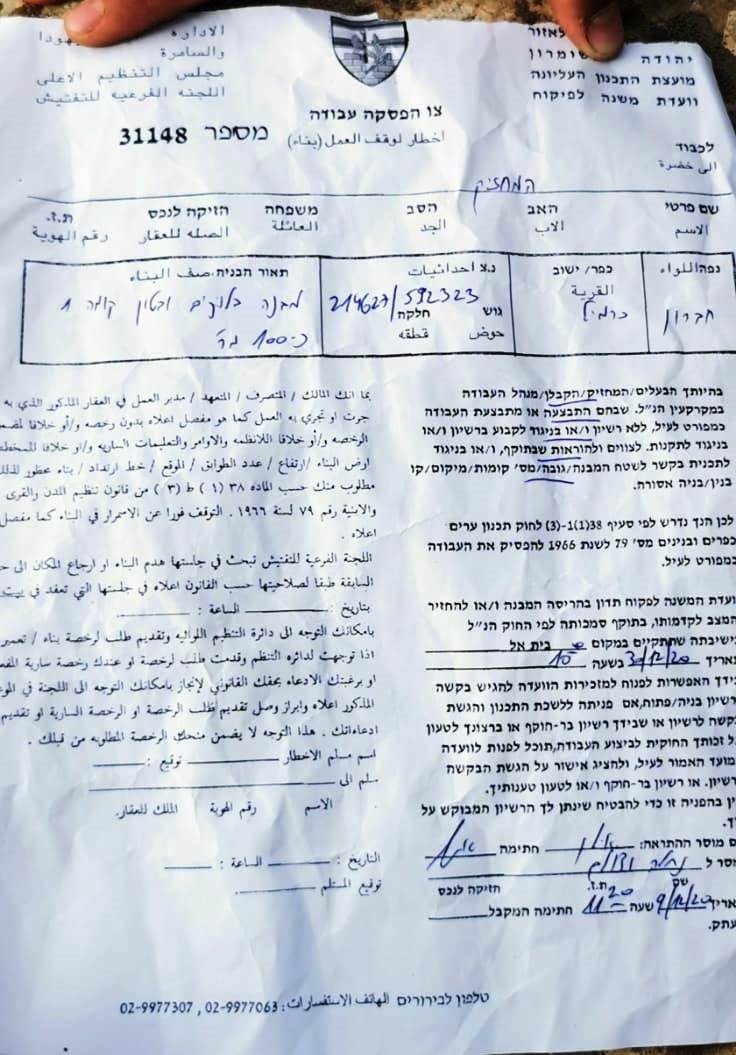 לאזור
יהודה שומרון
מועצת התכנון העליונה
וועדת משנה לפיקוח
الاداره يهودا
والسامرة
مجلس التنظيم الاعلى
اللجنه الفرعيه للتفتيش
צו הפסקה עבודה
اخطار لوقف العمل (بناء)
מספר 31148
לכבוד
الى حضرة
המחזיק
שם פרטי האב הסב משפחה הזיקה לנכס ת.ז.
الاسم الاب الجد العائلة الصله للعقار رقم الهوية
נפה اللواء
חברון
כפר/ ישוב
القرية
כרמיל
נ.צ احداثيات
214627/592323
גוש חלקה
حوض قطقه
תאור הבניה صف البناء
מבנה בלוקים ובטון קומה 1
כ-100 מר
בהיותך הבעלים/המחזיק/הקבלן/מנהל העבודה
במקרקעין הנ"ל. שבהם התבצעה או מתבצעת העבודה
כמפורט לעיל, ללא רשיון ו/או בניגוד לקבוע ברשיון ו/או
בניגוד לתקנות. לצווים ולהוראות שבתוקף, ו/או בניגוד
לתכנית בקשר לשטח המבנה/גובה/מס' קומות/מיקום/קו
בנין/בניה אסורה.
לכן הנך נדרש לפי סעיף 38(1)-(3) לחוק תכנון ערים
כפרים ובנינים מס' 79 לשנת 1966 להפסיק את העבודה
כמפורט לעיל.
ועדת המשנה לפקוח תדון בהריסה המבנה ו/או להחזיר
המצב לקדמותו, בתוקף סמכותה לפי החוק הנ"ל
בישיבתה שתתקיים במקום בית אל
תאריך 30/12/20 בשעה 10
בידך האפשרות לפנות למזכירות הוועדה להגיש בקשה
רשיון בניה/פתוח,אם פניתה ללשכת התכנון והגשת
בקשה לרשיון או שבידך רשיון בר-חוקף או ברצונך לטעון
ל זכותך החוקית לביצוע העבודה,תוכל לפנות לוועדה
מועד האמור לעיל, ולהציג אישור על הגשת הבקשה
רשיון. או רשיון בר-חוקף ו/או לטעון טענותיך.
ין בהפניה זו כדי להבטיח שינתן לך הרשיון המבוקש על
יך.
ם מוסר ההתראה: חתימה
מסר ל
שם ת.ז. חזיקה לנכס
אריך 9/12/20 שעה 11 20 חתימה המקבל
עתק.
بما انك المالك / المتصرف / المتعهد / مدير العمل في العقار المذكور الذي به
جرت او تجري به العمل كما هو مفصل اعلاه بدون رخصه و/أو خلافا لمضم
الرخصه و/أو خلافا للانظمه والاوامر والتعليمات الساريه و/او خلافا للمخطط
ارض البناء /ارتفاع / عدد الطوابق / الموقع / خط ارتداد / بناء محظور لذلك
مطلوب منك حسب الماده ٣٨ (١) ط (٣) من قانون تنظيم المدن والقرى
والابنية رقم ٧٩ لسنة ١٩٦٦ . التوقف فورا عن الاسمرار في البناء كما مفصل
اعلاه .
اللجنه الفرعية للتفتيش تبحث في جلستها هدم البناء او ارجاع المكان الى ح
السابقة طبقا لصلاحيتها حسب القانون اعلاه في جلستها التي تعقد في بيت
بتاريخ : الساعة :
بامكانك التوجه الى دائرة التنظيم اللوائيه وتقديم طلب لرخصة بناء / تعمير
اذا توجهت لدائره التنظم وقدمت طلب لرخصة او عندك رخصة سارية المفع
او برغبتك الادعاء بحقك القانوني لإنجاز بامكانك التوجه الى اللجنة في المو
المذكور اعلاه وابراز وصل تقديم طلب الرخصة او الرخصة السارية او تقديم
ادعاءاتك . هذا التوجه لا يضمن منحك الرخصة المطلوبه من قبلك .
اسم مسلم الاخطار توقيع :
سلم الى
الاسم رقم الهوية الملك للعقار.
التاريخ : الساعة :
توقيع المستلم
טלפון לבירורים الهاتف الاستفسارات : 02-9977063 , 02-9977307